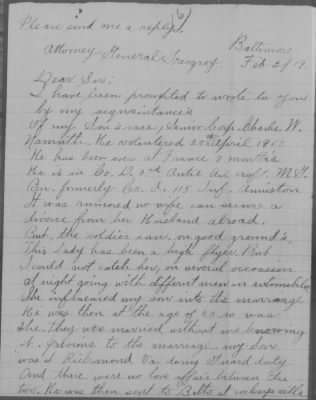 (6)
Please send me a reply.
Baltimore
Attorney General Gregory. Feb 2/19.
Dear Sir:
I have been prompted to write to you
by my acquaintance's
Of my Son's case, Senior Corp. Charles W.
He volunteered 20th April 1917.
He has been over at France 9 months
He is in Co. D. 2nd Antie Air craft M.G.
Bn. formerly Co. I. 115 Inf. Anniston
It was rumored no wife can secure a
divorce from her Husband abroad.
But, the soldier can, on good ground's,
This Lady has been a high flyer. But
I could not catch her, on several occassion
at night going with different men in automobiles
She influenced my son into the marriage
He was then at the age of 20. so was
she. they was married without me knowing
it. previous to the marriage my Son
was at Richmond Va doing Guard duty
And there were no love affair between the
two. He was then sent to Balto at